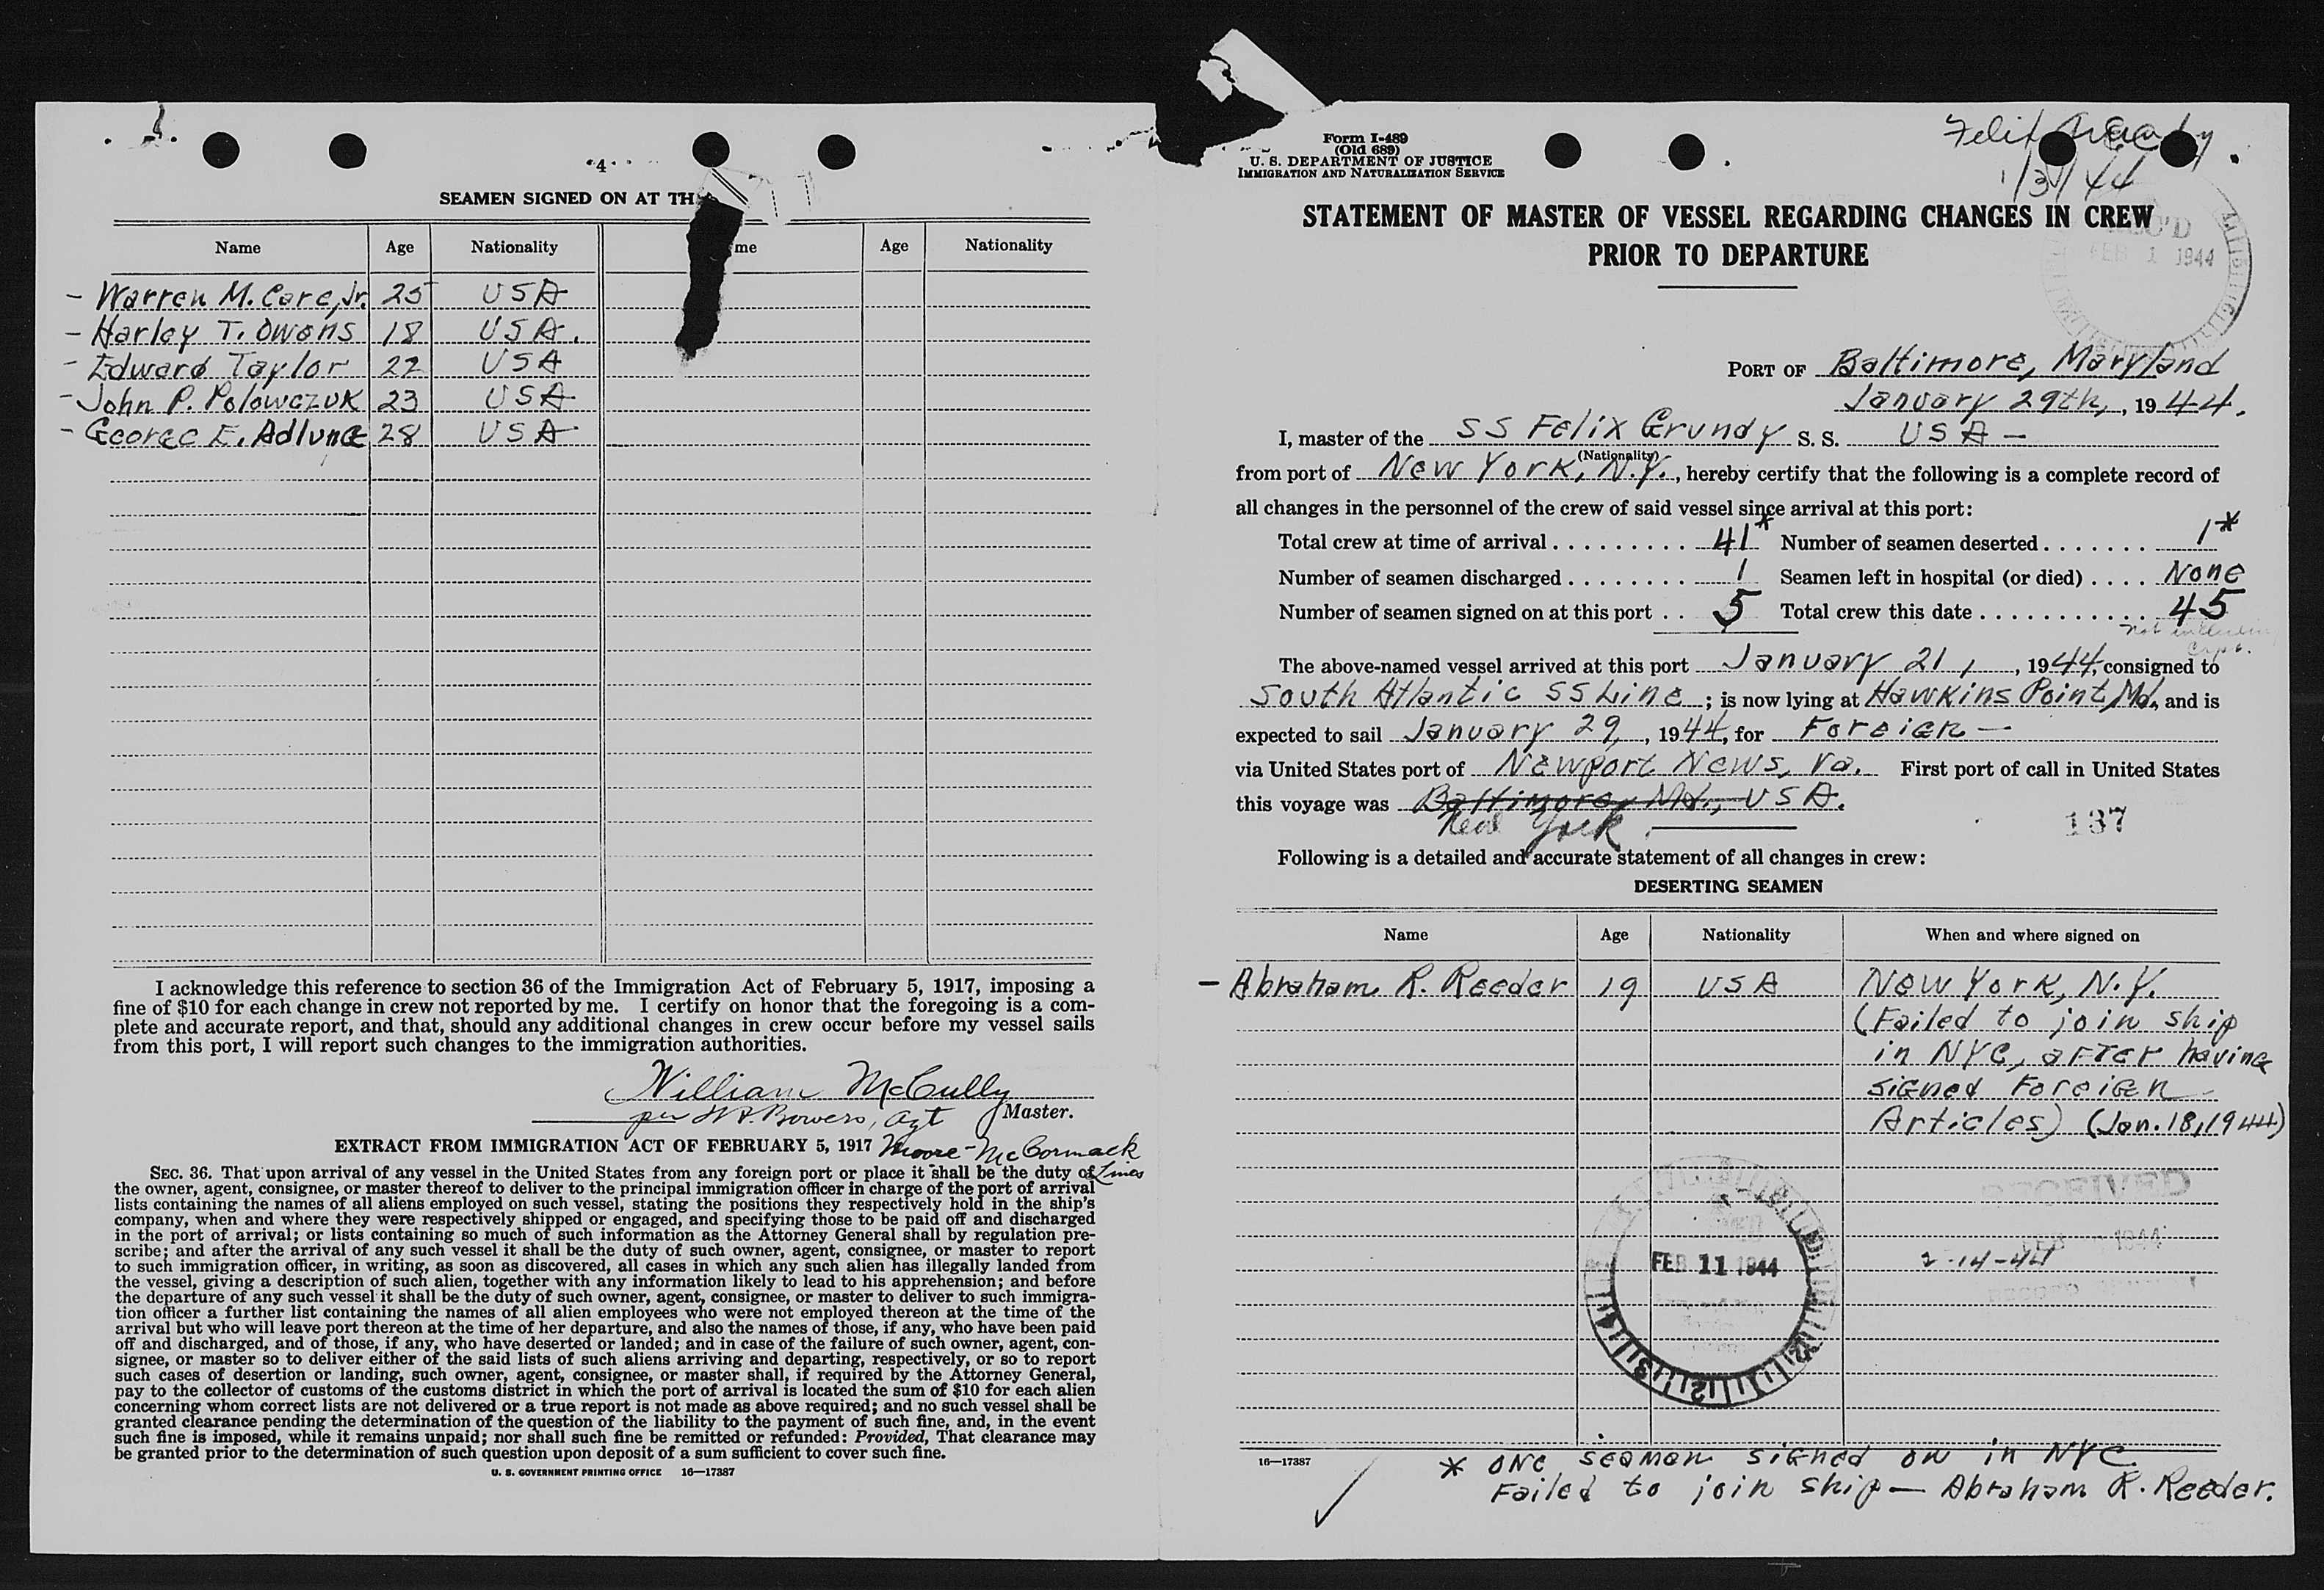 4
SEAMEN SIGNED ON AT TH
Name Age Nationality me Age Nationality
– Warren M. Care, Jr. 25 USA
– Harley T. Owens 18 USA.
– Edward Taylor 22 USA
– John P. Polowczuk 23 USA
– George E. Adlung 28 USA
I acknowledge this reference to section 36 of the Immigration Act of February 5, 1917, imposing a
fine of $10 for each change in crew not reported by me. I certify on honor that the foregoing is a com-
plete and accurate report, and that, should any additional changes in crew occur before my vessel sails
from this port, I will report such changes to the immigration authorities.
William McCully
per W.P. Bowers, Agt Master.
EXTRACT FROM IMMIGRATION ACT OF FEBRUARY 5, 1917 Moore-McCormack
Lines
SEC. 36. That upon arrival of any vessel in the United States from any foreign port or place it shall be the duty of
the owner, agent, consignee, or master thereof to deliver to the principal immigration officer in charge of the port of arrival
lists containing the names of all aliens employed on such vessel, stating the positions they respectively hold in the ship's
company, when and where they were respectively shipped or engaged, and specifying those to be paid off and discharged
in the port of arrival; or lists containing so much of such information as the Attorney General shall by regulation pre-
scribe; and after the arrival of any such vessel it shall be the duty of such owner, agent, consignee, or master to report
to such immigration officer, in writing, as soon as discovered, all cases in which any such alien has illegally landed from
the vessel, giving a description of such alien, together with any information likely to lead to his apprehension; and before
the departure of any such vessel it shall be the duty of such owner, agent, consignee, or master to deliver to such immigra-
tion officer a further list containing the names of all alien employees who were not employed thereon at the time of the
arrival but who will leave port thereon at the time of her departure, and also the names of those, if any, who have been paid
off and discharged, and of those, if any, who have deserted or landed; and in case of the failure of such owner, agent, con-
signee, or master so to deliver either of the said lists of such aliens arriving and departing, respectively, or so to report
such cases of desertion or landing, such owner, agent, consignee, or master shall, if required by the Attorney General,
pay to the collector of customs of the customs district in which the port of arrival is located the sum of $10 for each alien
concerning whom correct lists are not delivered or a true report is not made as above required; and no such vessel shall be
granted clearance pending the determination of the question of the liability to the payment of such fine, and, in the event
such fine is imposed, while it remains unpaid; nor shall such fine be remitted or refunded: Provided, That clearance may
be granted prior to the determination of such question upon deposit of a sum sufficient to cover such fine.
U. S. GOVERNMENT PRINTING OFFICE 16—17387
Form I-489
(Old 689)
U. S. DEPARTMENT OF JUSTICE
IMMIGRATION AND NATURALIZATION SERVICE
Felix Grundy
1/31/44
STATEMENT OF MASTER OF VESSEL REGARDING CHANGES IN CREW
PRIOR TO DEPARTURE
REC'D
FEB 1 1944
PORT OF Baltimore, Maryland
January 29th, , 1944.
I, master of the SS Felix Grundy S. S. USA –
(Nationality)
from port of New York, N.Y., hereby certify that the following is a complete record of
all changes in the personnel of the crew of said vessel since arrival at this port:
Total crew at time of arrival 41* Number of seamen deserted 1*
Number of seamen discharged 1 Seamen left in hospital (or died) None
Number of seamen signed on at this port 5 Total crew this date 45
not
The above-named vessel arrived at this port January 21, , 1944, consigned to
South Atlantic SS Line ; is now lying at Hawkins Point, Md., and is
expected to sail January 29, , 1944, for Foreign –
via United States port of Newport News, Va. First port of call in United States
this voyage was Baltimore, Md., USA.
New York
137
Following is a detailed and accurate statement of all changes in crew:
DESERTING SEAMEN
Name Age Nationality When and where signed on
– Abraham R. Reeder 19 USA New York, N.Y.
(Failed to join ship
in NYC, after having
signed Foreign
Articles) (Jan. 18, 1944)
RECEIVED
FEB 1944
FEB 11 1944
2-14-44
16—17387
* One seaman signed on in NYC
Failed to join ship – Abraham R. Reeder.